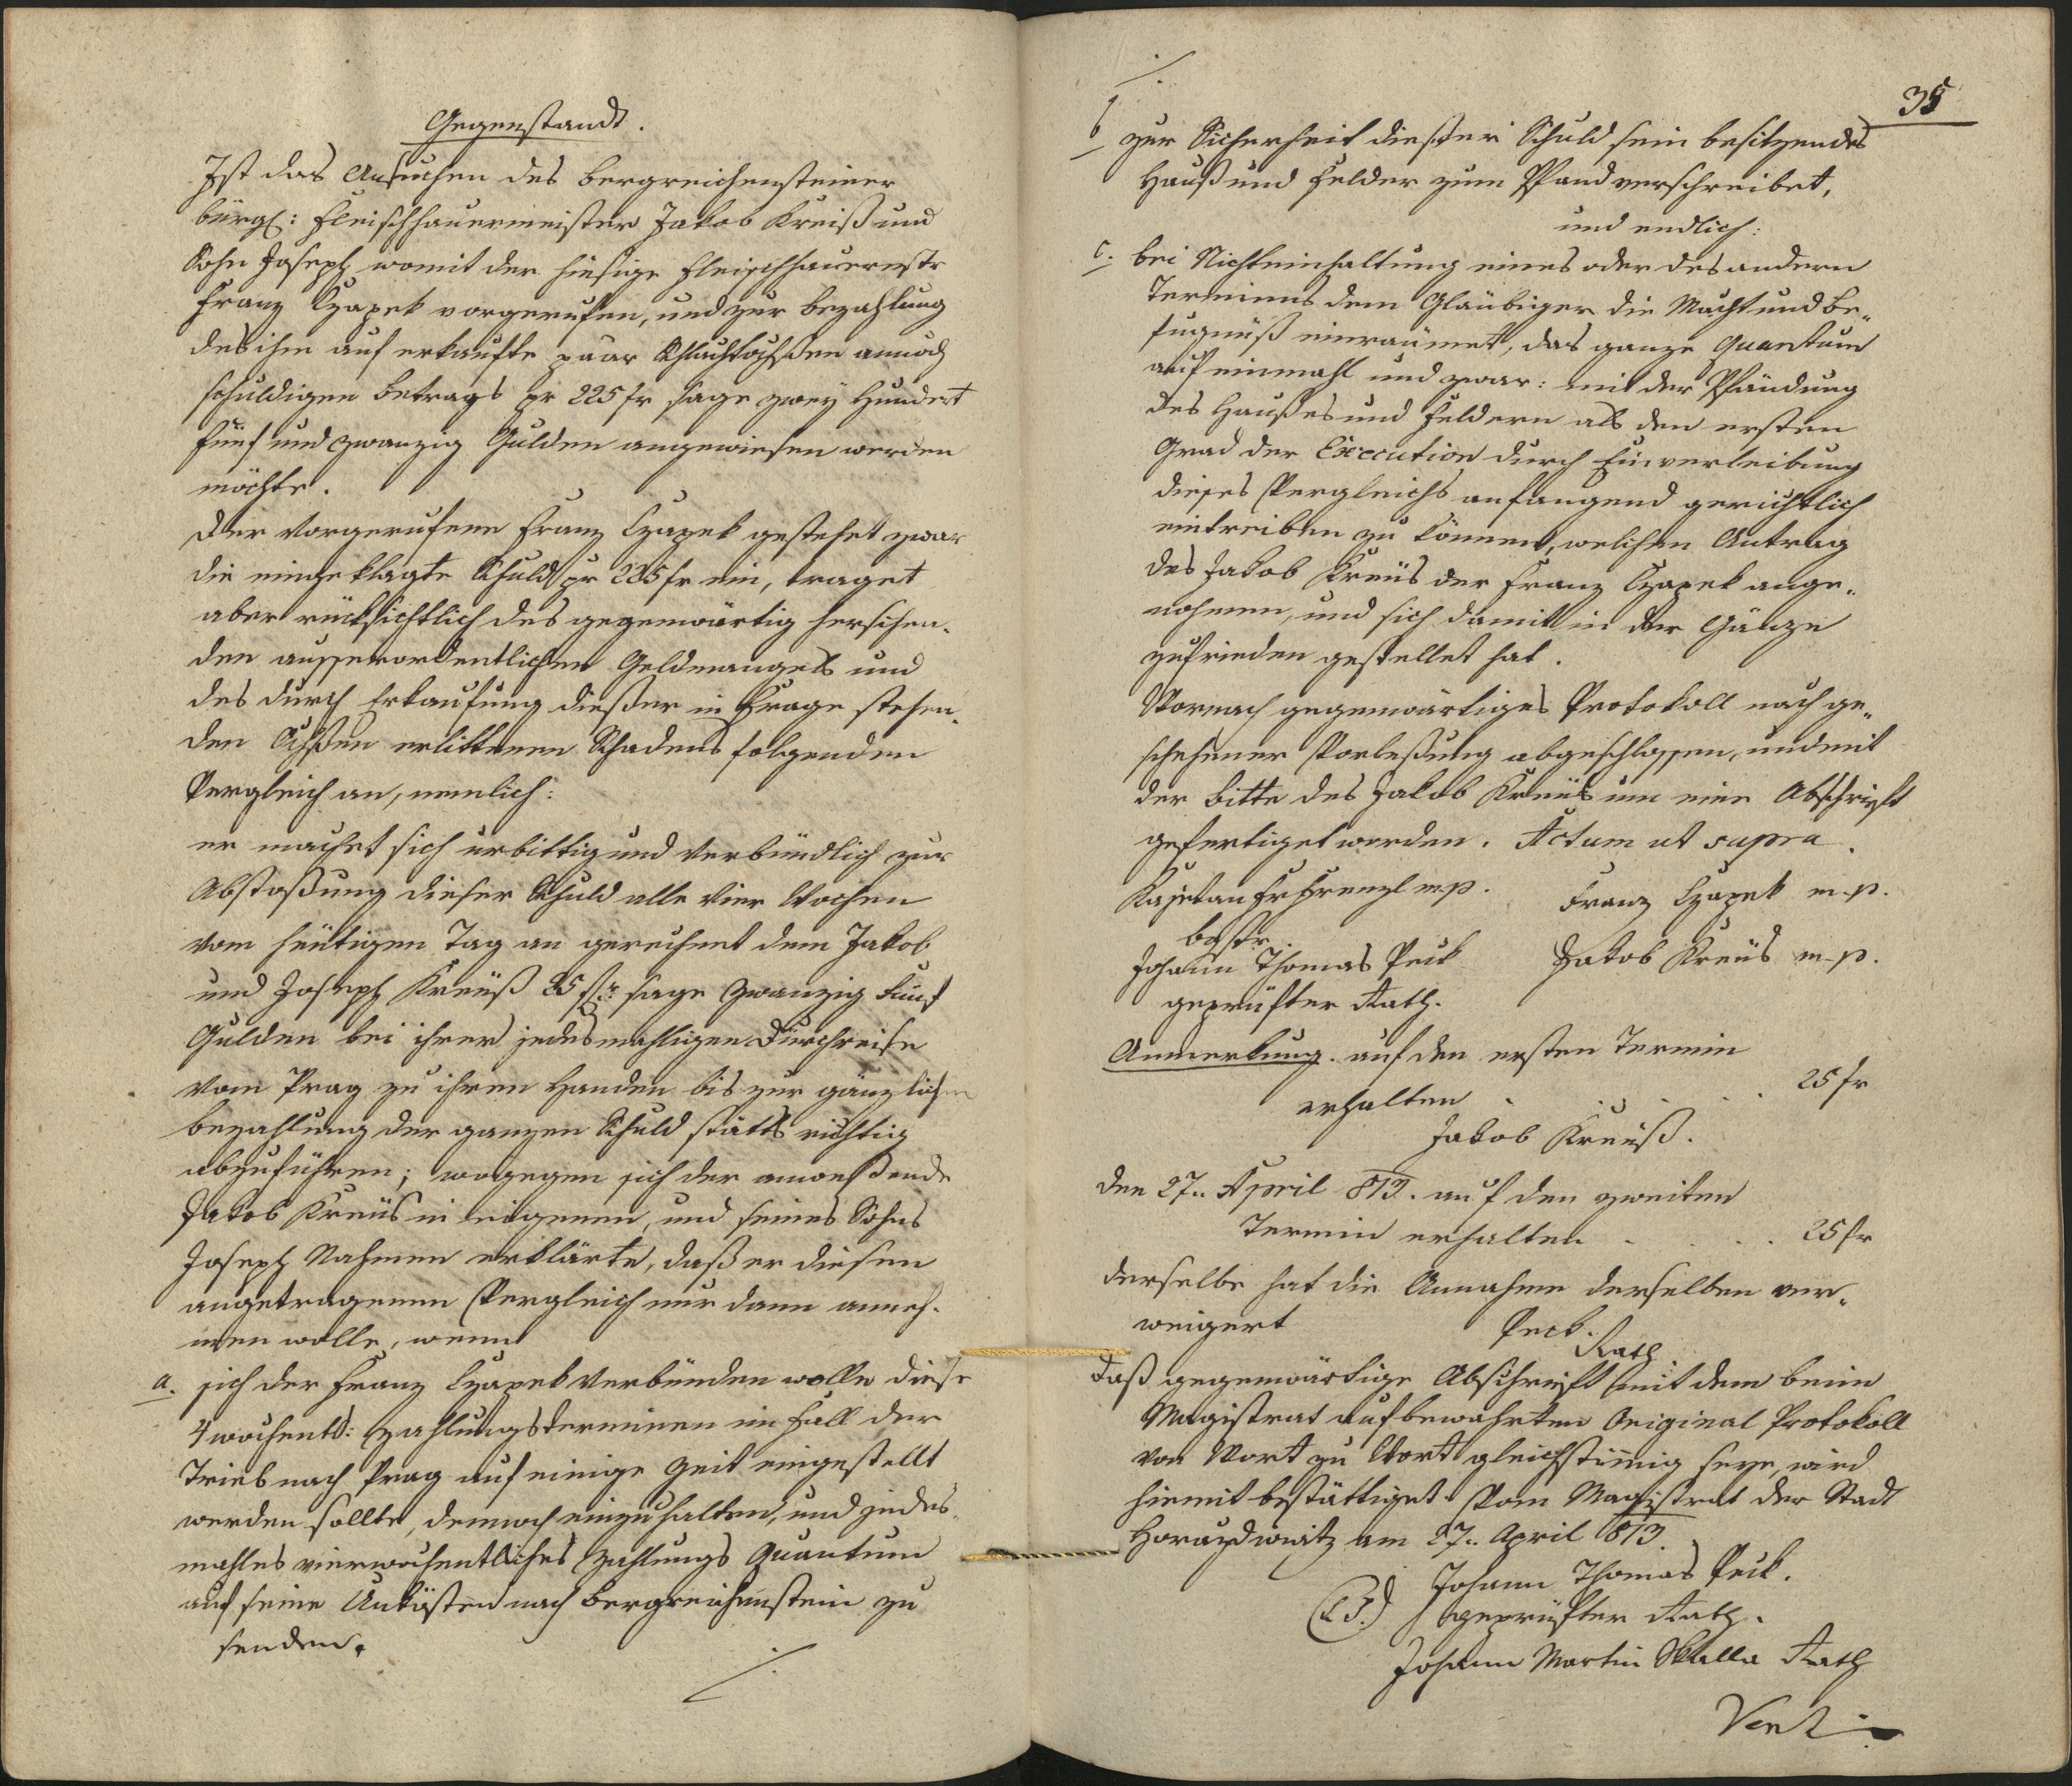 Gegenstandt.
Ist das Ansuchen des bergreichensteiner
bürgl: Fleischhauermeister Jakob Kreiß und
Sohn Joseph womit der hiesige Fleischhauermstr
Franz Czapek vorgerufen, und zur bezahlung
des ihm auf erkaufte paar Schlachtochßen annoch
schuldigen betrags pr 225 fr sage zwey Hundert
fünf und zwanzig Gulden angewiesen werden
möchte.
Der Vorgerufene Franz Czapek gestehet zwar
die eingeklagte Schuld pr 225 fr ein, traget
aber rücksichtlich des gegenwärtig herschen-
den ausserordentlichen Geldmangels und
des durch Erkaufung dießer in Frage stehen-
den Ochßen erlittenen Schadens folgenden
Vergleich an, nemlich:
er machet sich urbittig und verbündlich zur
Abstoßung dieser Schuld alle vier Wochen
vom heutigen Tag an gerechnet dem Jakob
und Joseph Kreuß 25 fr sage Zwanzig Fünf
Gulden bei ihrer jedesmahligen Durchreise
vom Prag zu ihren Handen bis zur gänzlichen
bezahlung der ganzen Schuld stätts richtig
abzuführen; wogegen sich der anweßende
Jakob Kreüs in eigenen, und seines Sohns
Joseph Nahmen erklärte, daß er diesen
angetragenen Vergleich nur dann anneh-
men wolle, wenn
a. sich der Franz Czapek verbünden wolle diese
4 wochentl: Zahlungsterminen im Fall der
Trieb nach Prag auf einige Zeit eingestellt
werden sollte, dennoch einzuhalten, und jedes-
mahles vierwochentliches Zahlungs Quantum
auf seine Unkösten nach Bergreichenstein zu
senden.
./.
./.
35
b zur Sicherheit dießer Schuld sein besitzendes
Hauß und Felder zum Pfand verschreibet,
und endlich:
c. bei Nichteinhaltung eines oder des andern
Termins dem Gläubiger die Macht und Be-
fugnüß einräumet, das ganze Quantum
auf einmahl und zwar: mit der Pfändung
des Haußes und Feldern als den ersten
Grad der Execution durch Einverleibung
dieses Vergleichs anfangend gerichtlich
eintreiben zu können, welchen Antrag
des Jakob Kreüs der Franz Czapek ange-
nohmen, und sich damit in der Gänze
zufrieden gestellet hat.
Wornach gegenwärtiges Protokoll nach ge-
schehener Vorleßung abgeschlossen, und mit
der bitte des Jakob Kreüs um eine Abschrift
gefertiget worden. Actum ut supra.
Kajetan Frenzl mp. Franz Czapek m.p.
bgstr.
Johann Thomas Peck Jakob Kreüs m.p.
geprüfter Rath.
Anmerkung. auf den ersten Termin
erhalten . . . . 25 fr
Jakob Kreuß.
den 27.. April 813. auf den zweiten
Termin erhalten . . . . 25 fr
derselbe hat die Annahme derselben ver-
weigert Peck.
Rath
Daß gegenwärtige Abschrift mit dem beim
Magistrat aufbewahrten Original Protokoll
von Wort zu Wort gleichstimmig seye, wird
hiemit bestättiget. Vom Magistrat der Stadt
Horazdiowitz am 27.. April 813.
Johann Thomas Peck.
(L.S.) geprüfter Rath.
Johann Martin Skalla Rath
Vert